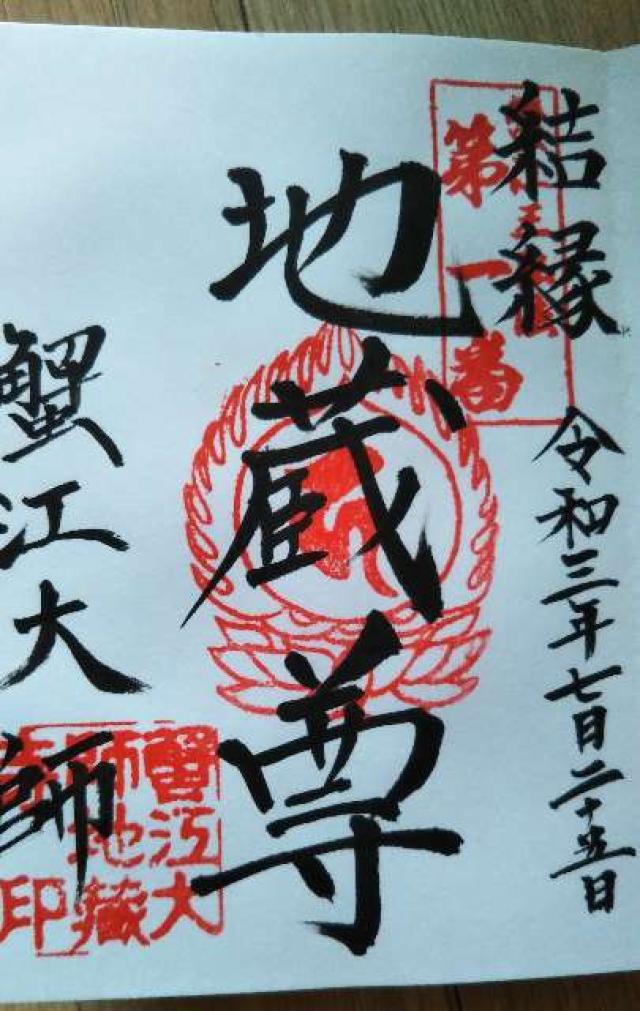 結縁
令和三年七月二十五日
第一番
地蔵尊
蟹江大師
蟹江大
師地蔵
印